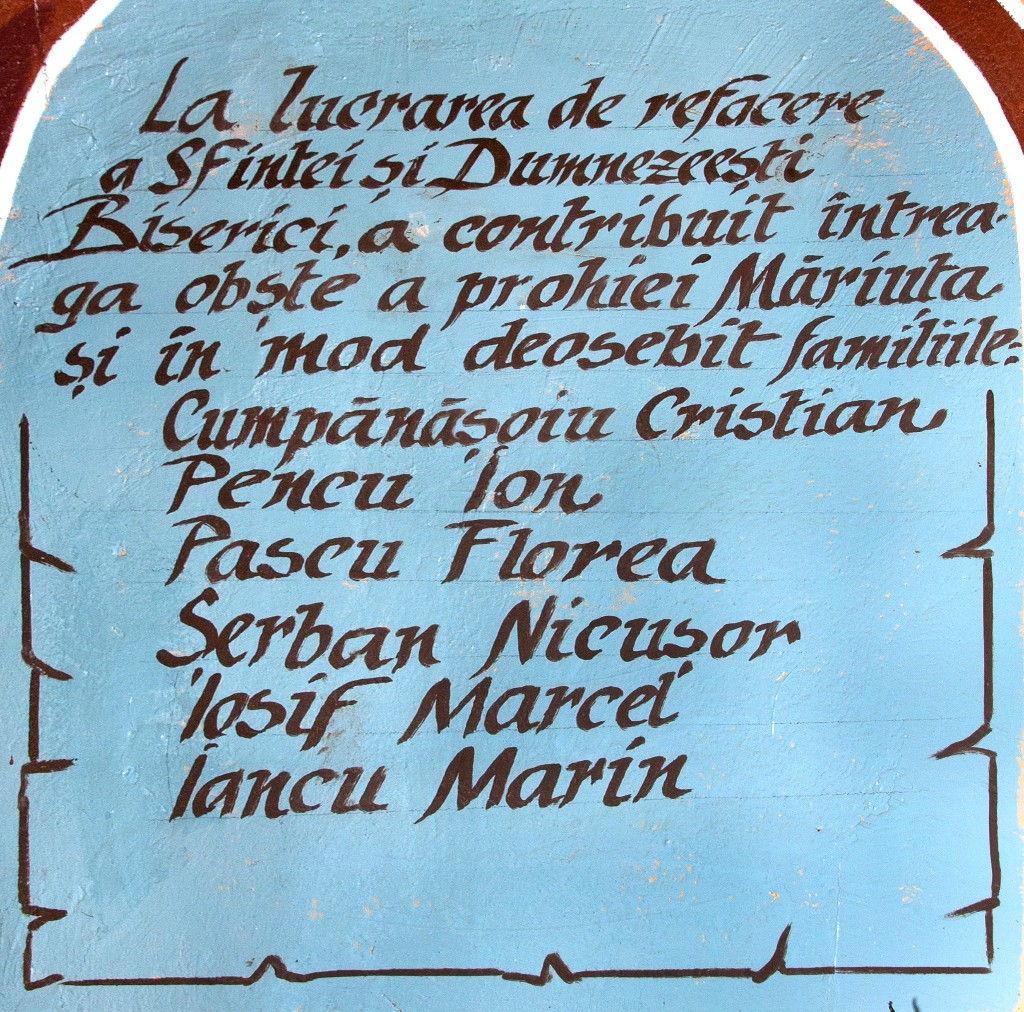 La lucrarea de refacere
a Sfintei și Dumnezeești
Biserici, a contribuit întrea-
ga obște a prohiei Măriuta
și in mod deosebit familiile:
Cumpănășoiu Cristian
Pencu Ion
Pascu Florea
Șerban Nicușor
Iosif Marcel
Iancu Marin